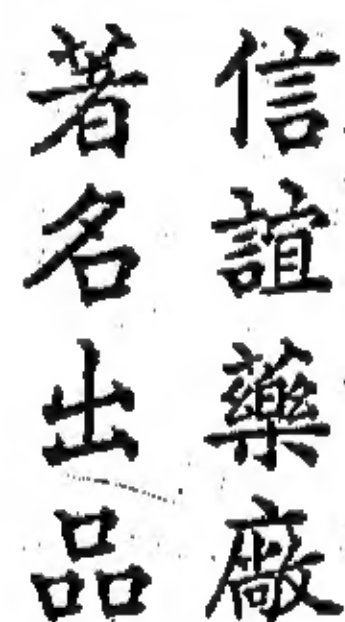 信誼藥廠
著名出品